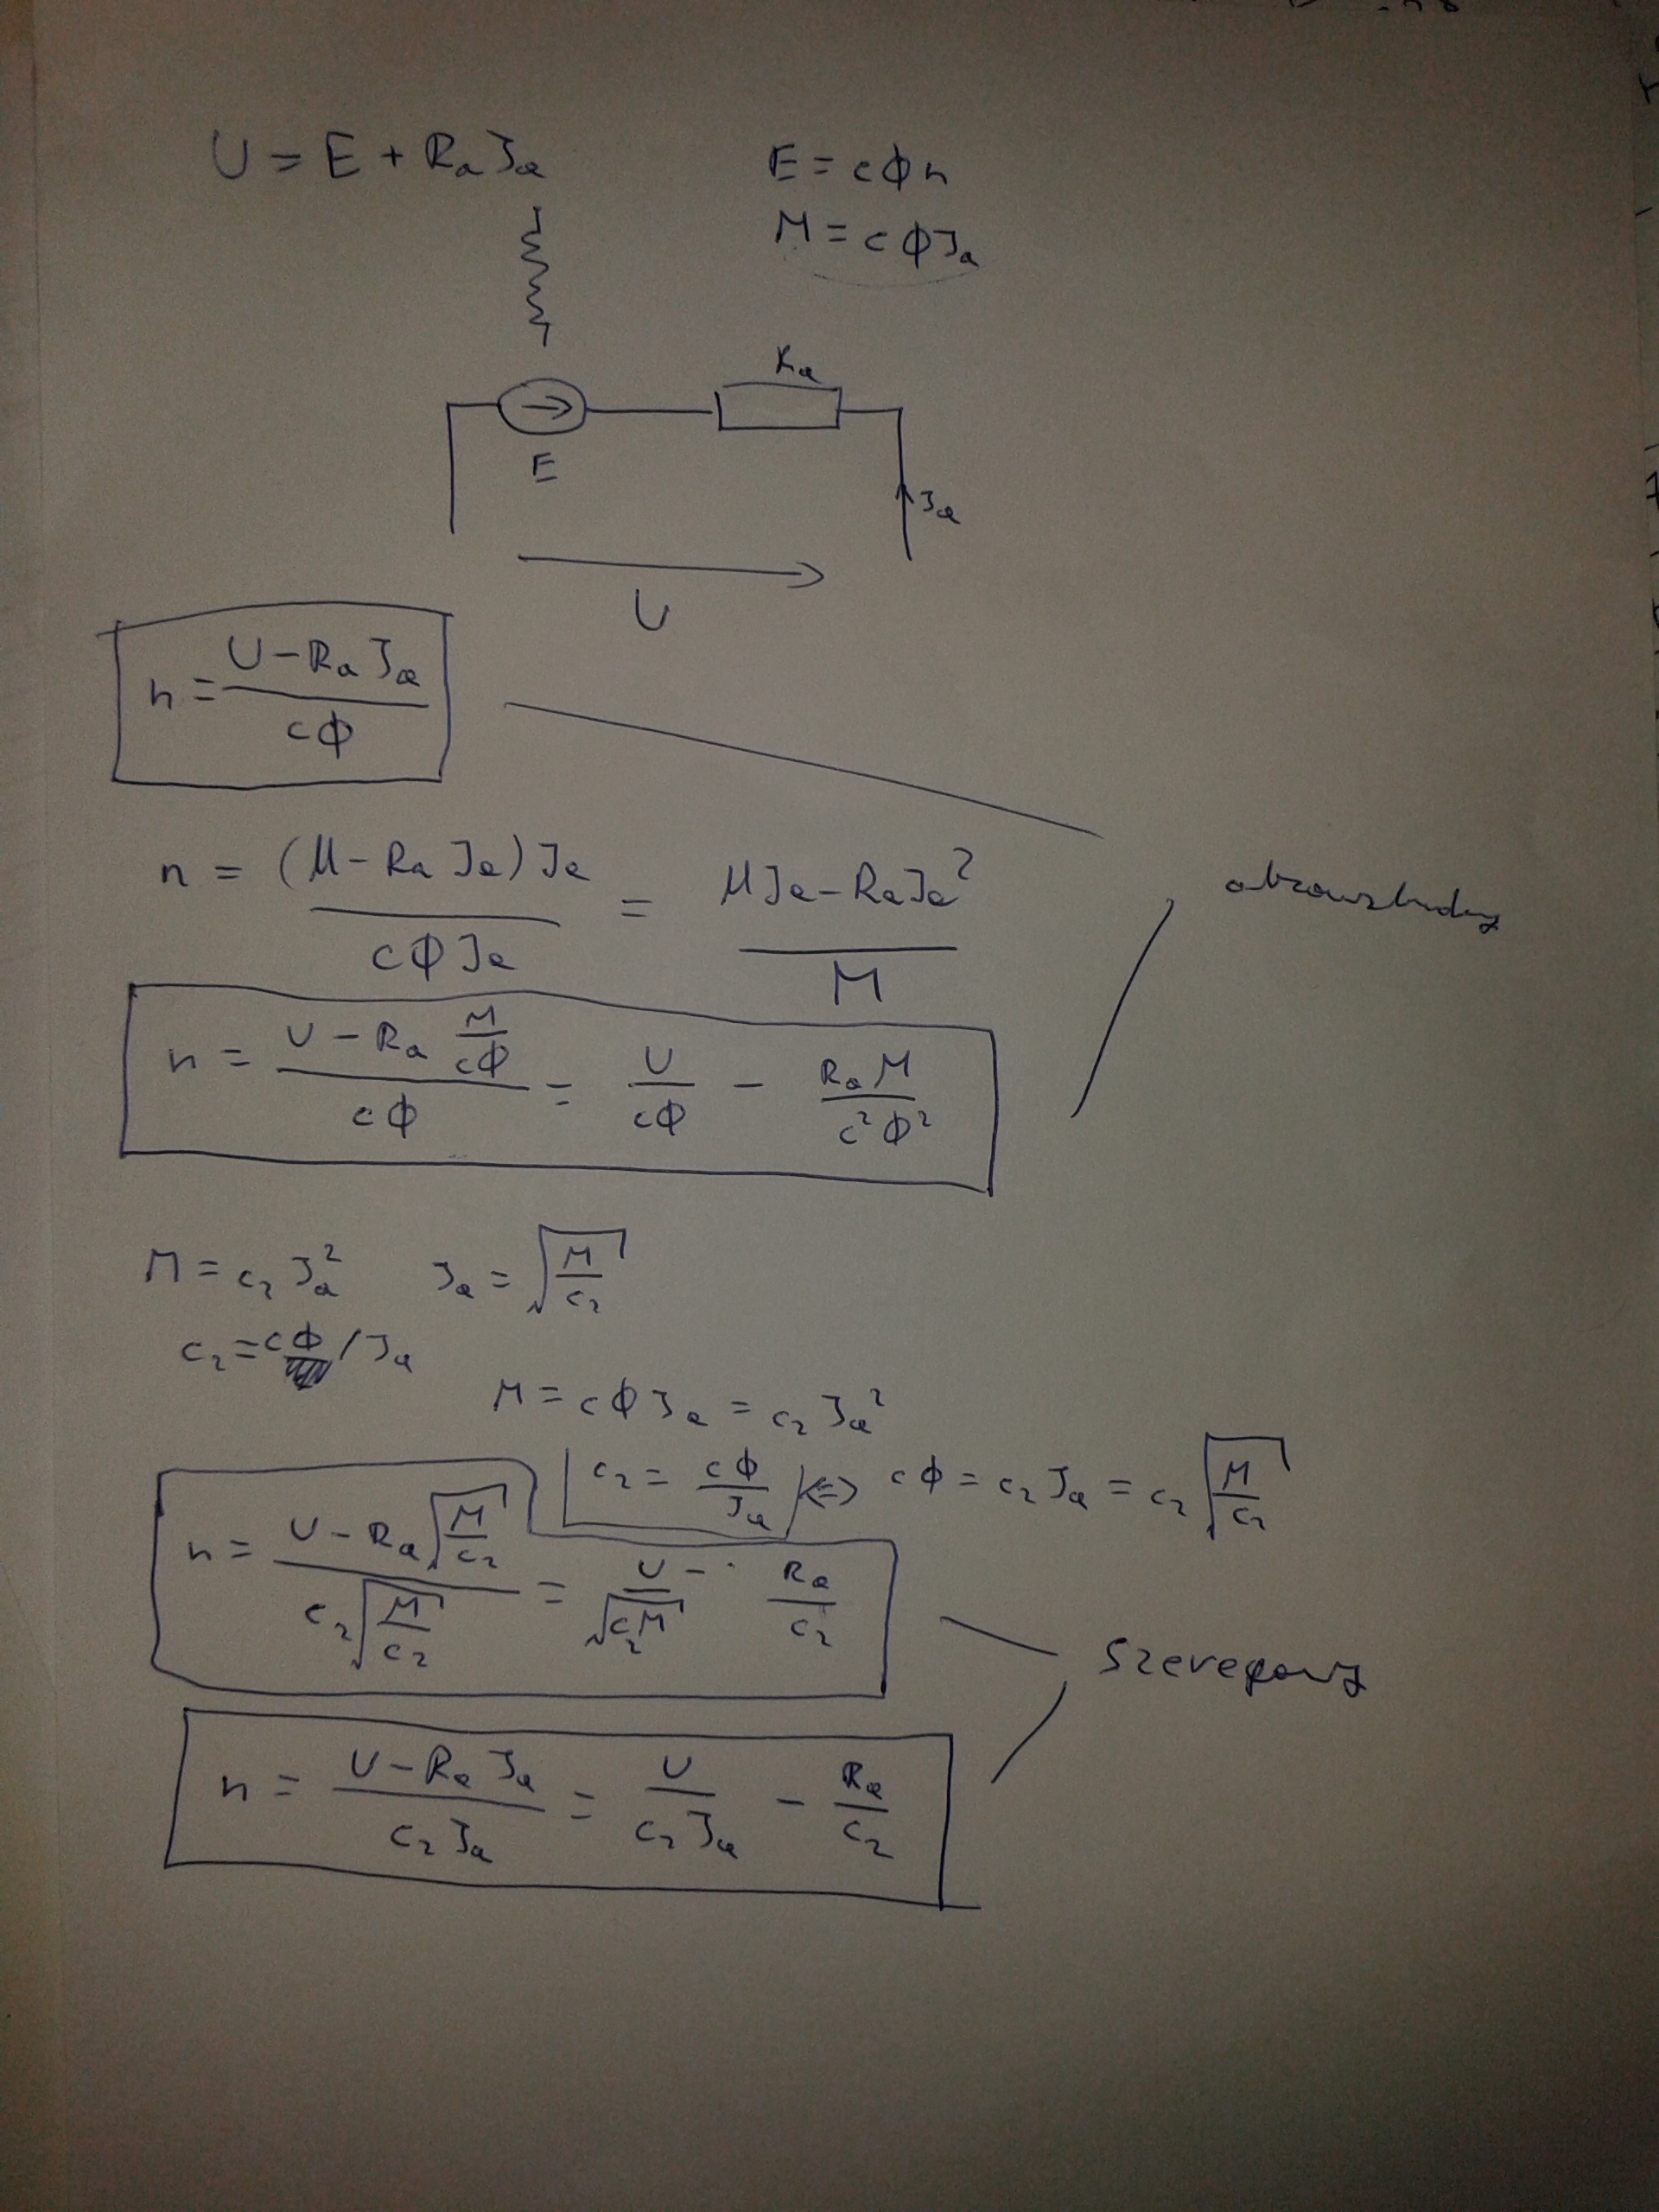 U = E + Rₐ Iₐ
E = cϕn
M = cϕIₐ
Rₐ
E
Iₐ
U
n = (U − Rₐ Iₐ) / (cϕ)
n = (U − Rₐ Iₐ) Iₐ / (cϕIₐ) = (U Iₐ − Rₐ Iₐ²) / M
n = (U − Rₐ M/(cϕ)) / (cϕ) = U/(cϕ) − Rₐ M/(c²ϕ²)
M = c₂ Iₐ² Iₐ = √(M/c₂)
c₂ = cϕ / Iₐ
M = cϕ Iₐ = c₂ Iₐ²
c₂ = cϕ/Iₐ <=> cϕ = c₂ Iₐ = c₂ √(M/c₂)
n = (U − Rₐ √(M/c₂)) / (c₂ √(M/c₂)) = U/√(c₂M) − Rₐ/c₂
Szeregowy
n = (U − Rₐ Iₐ) / (c₂ Iₐ) = U/(c₂ Iₐ) − Rₐ/c₂